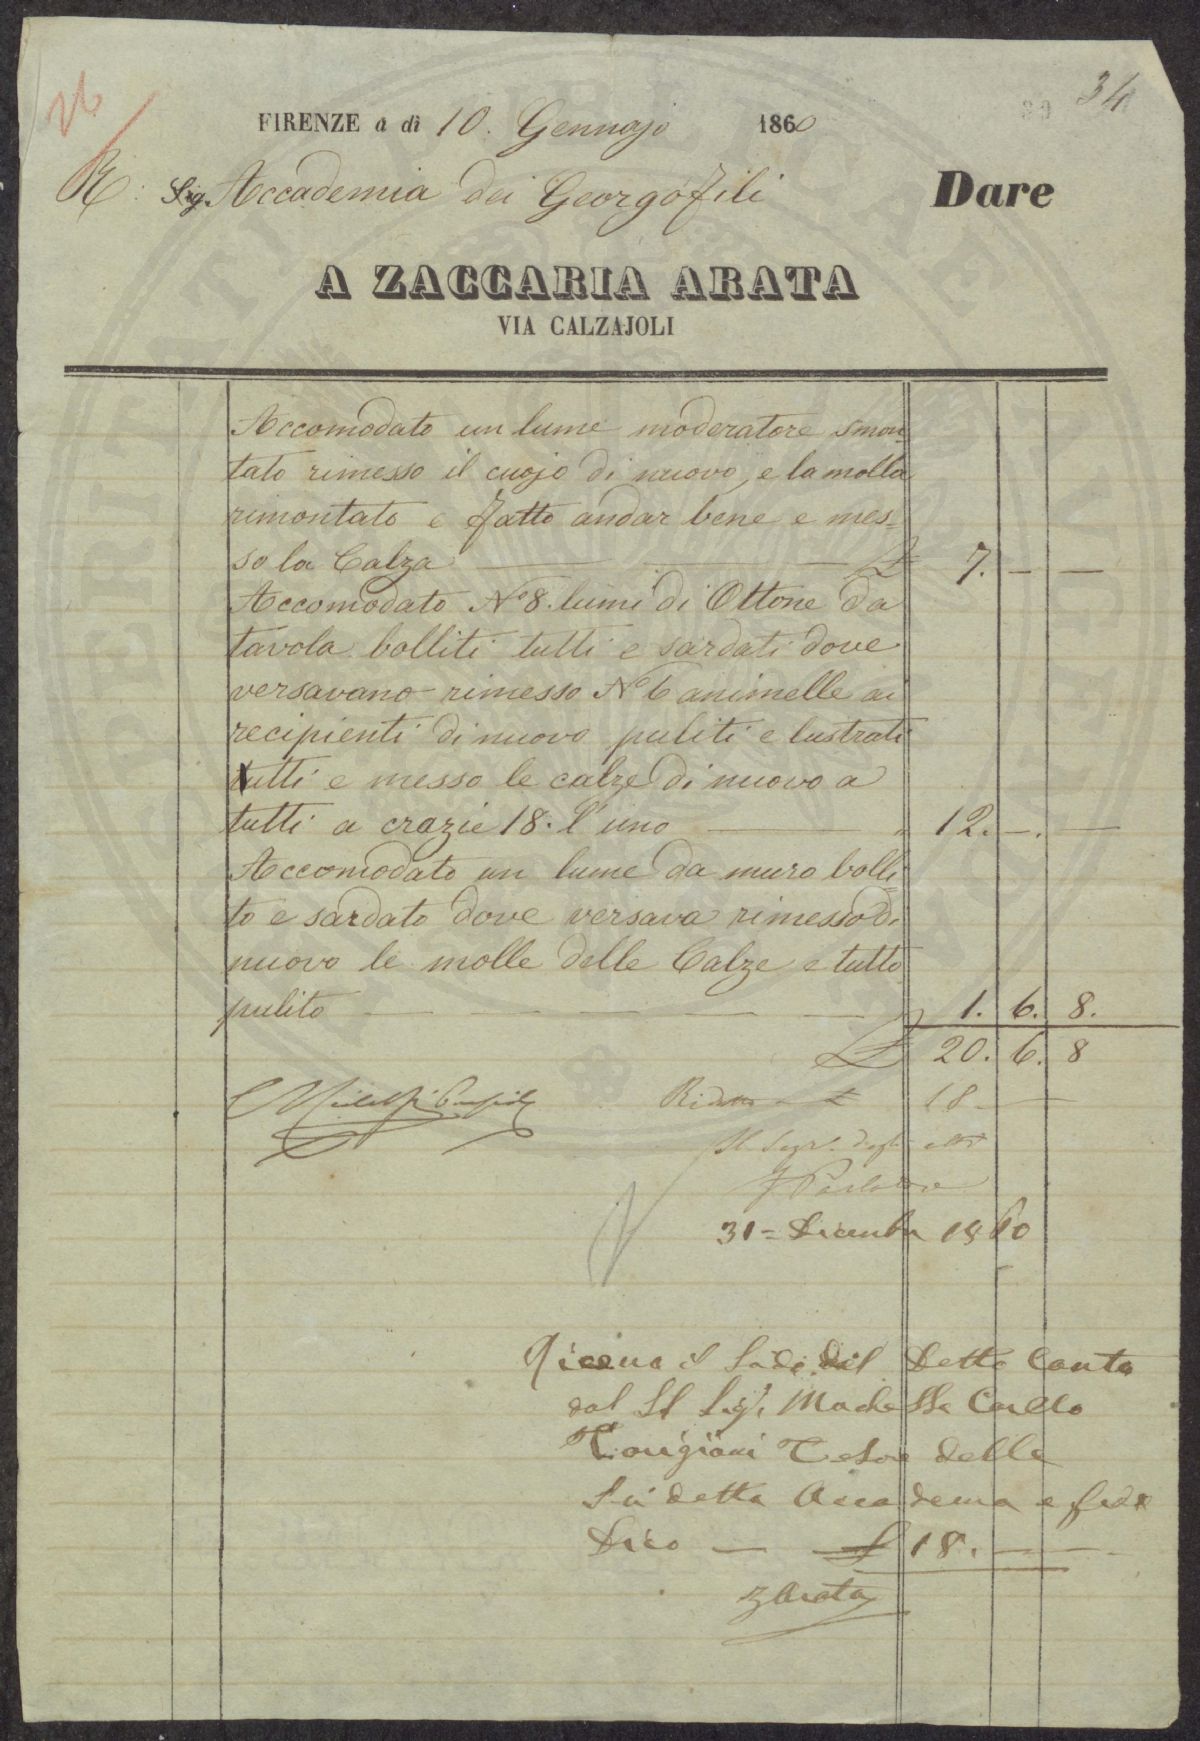 26
34
FIRENZE a dì 10. Gennajo 1860
R. Sig. Accademia dei Georgofili Dare
A ZACCARIA ARATA
VIA CALZAJOLI
Accomodato un lume moderatore smon
tato rimesso il cuojo di nuovo, e la molla
rimontato e fatto andar bene e mes=
so la Calza £ 7. — —
Accomodato N° 8. lumi di Ottone da
tavola bolliti tutti e sardati dove
versavano rimesso N° 6 animelle ai
recipienti di nuovo puliti e lustrati
tutti e messo le calze di nuovo a
tutti a crazie 18. l'uno " 12. —. —
Accomodato un lume da muro bolli
to e sardato dove versava rimesso di
nuovo le molle delle Calze e tutto
pulito 1. 6. 8.
£ 20. 6. 8
Ridotto a £ 18 —
Il Segr. degli atti
31 = Dicembre 1860
il Saldo del detto Conto
dal Sig. Marchese Carllo
Torigiani Tesore della
Su detta Accademia e fede
Dico — £ 18. — —
ZArata